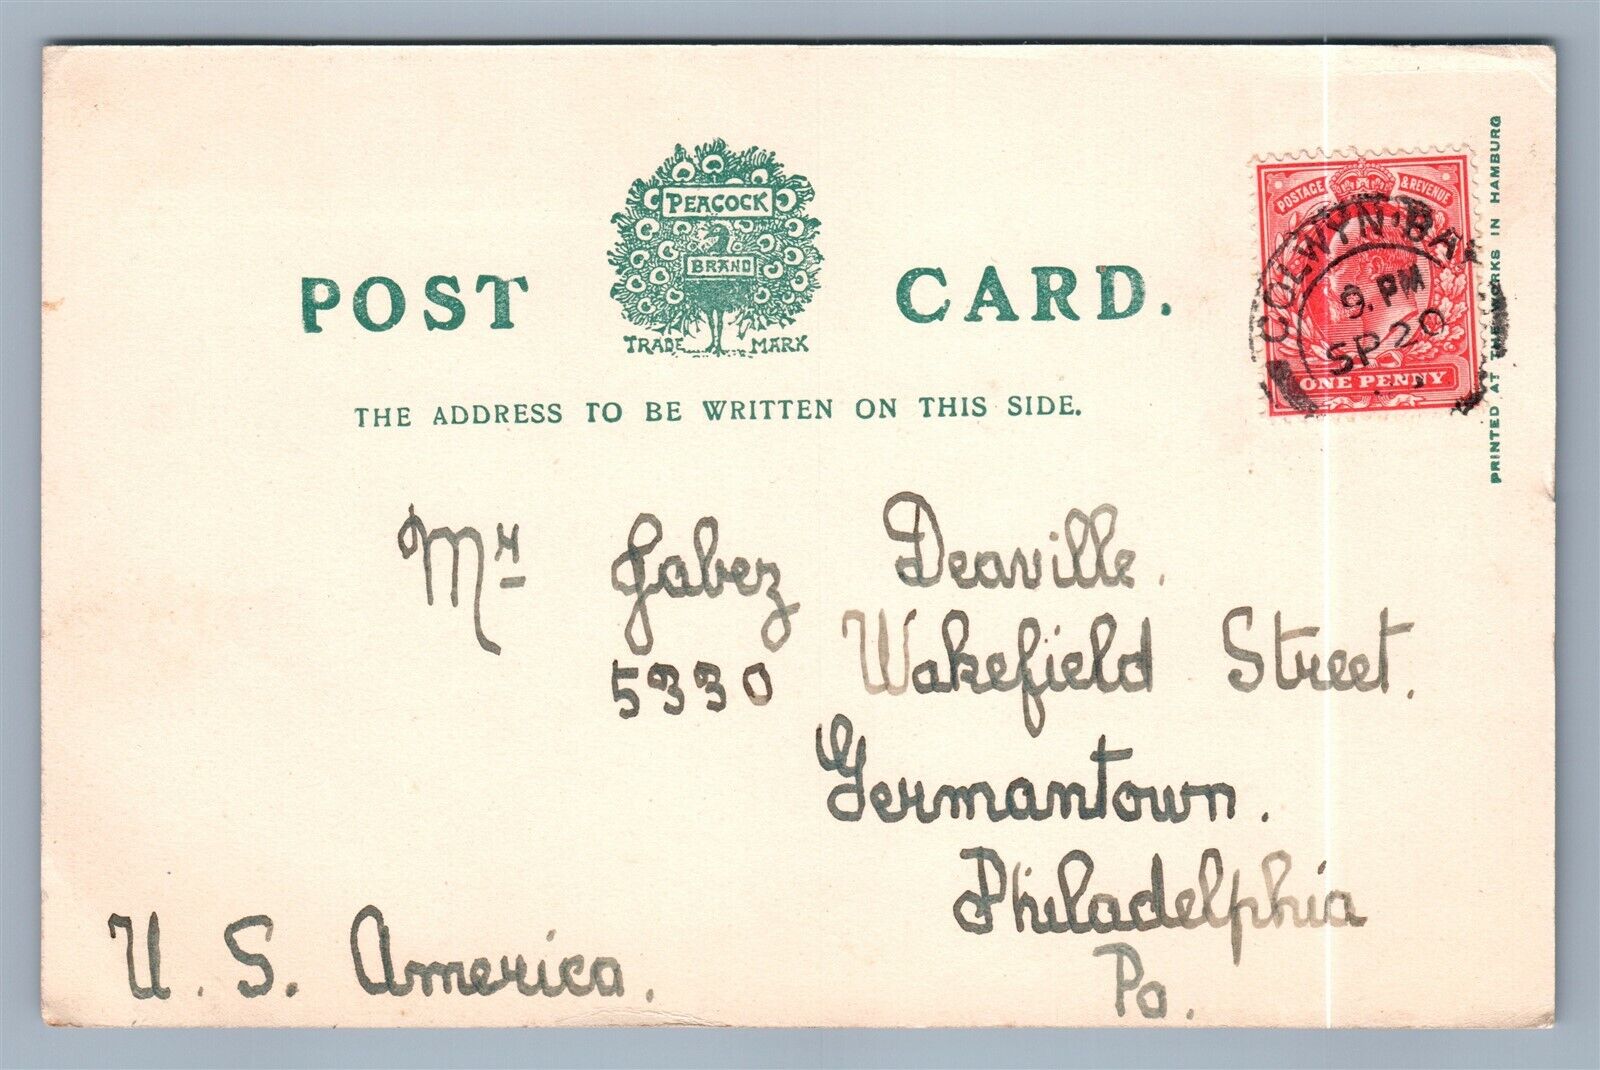 POST CARD.
PEACOCK
BRAND
TRADE MARK
THE ADDRESS TO BE WRITTEN ON THIS SIDE.
POSTAGE & REVENUE
COLWYN·BAY
9. PM
SP 20
ONE PENNY
PRINTED AT THE WORKS IN HAMBURG
Mr Jabez Deaville.
5330 Wakefield Street.
Germantown.
Philadelphia
Pa.
U. S. America.